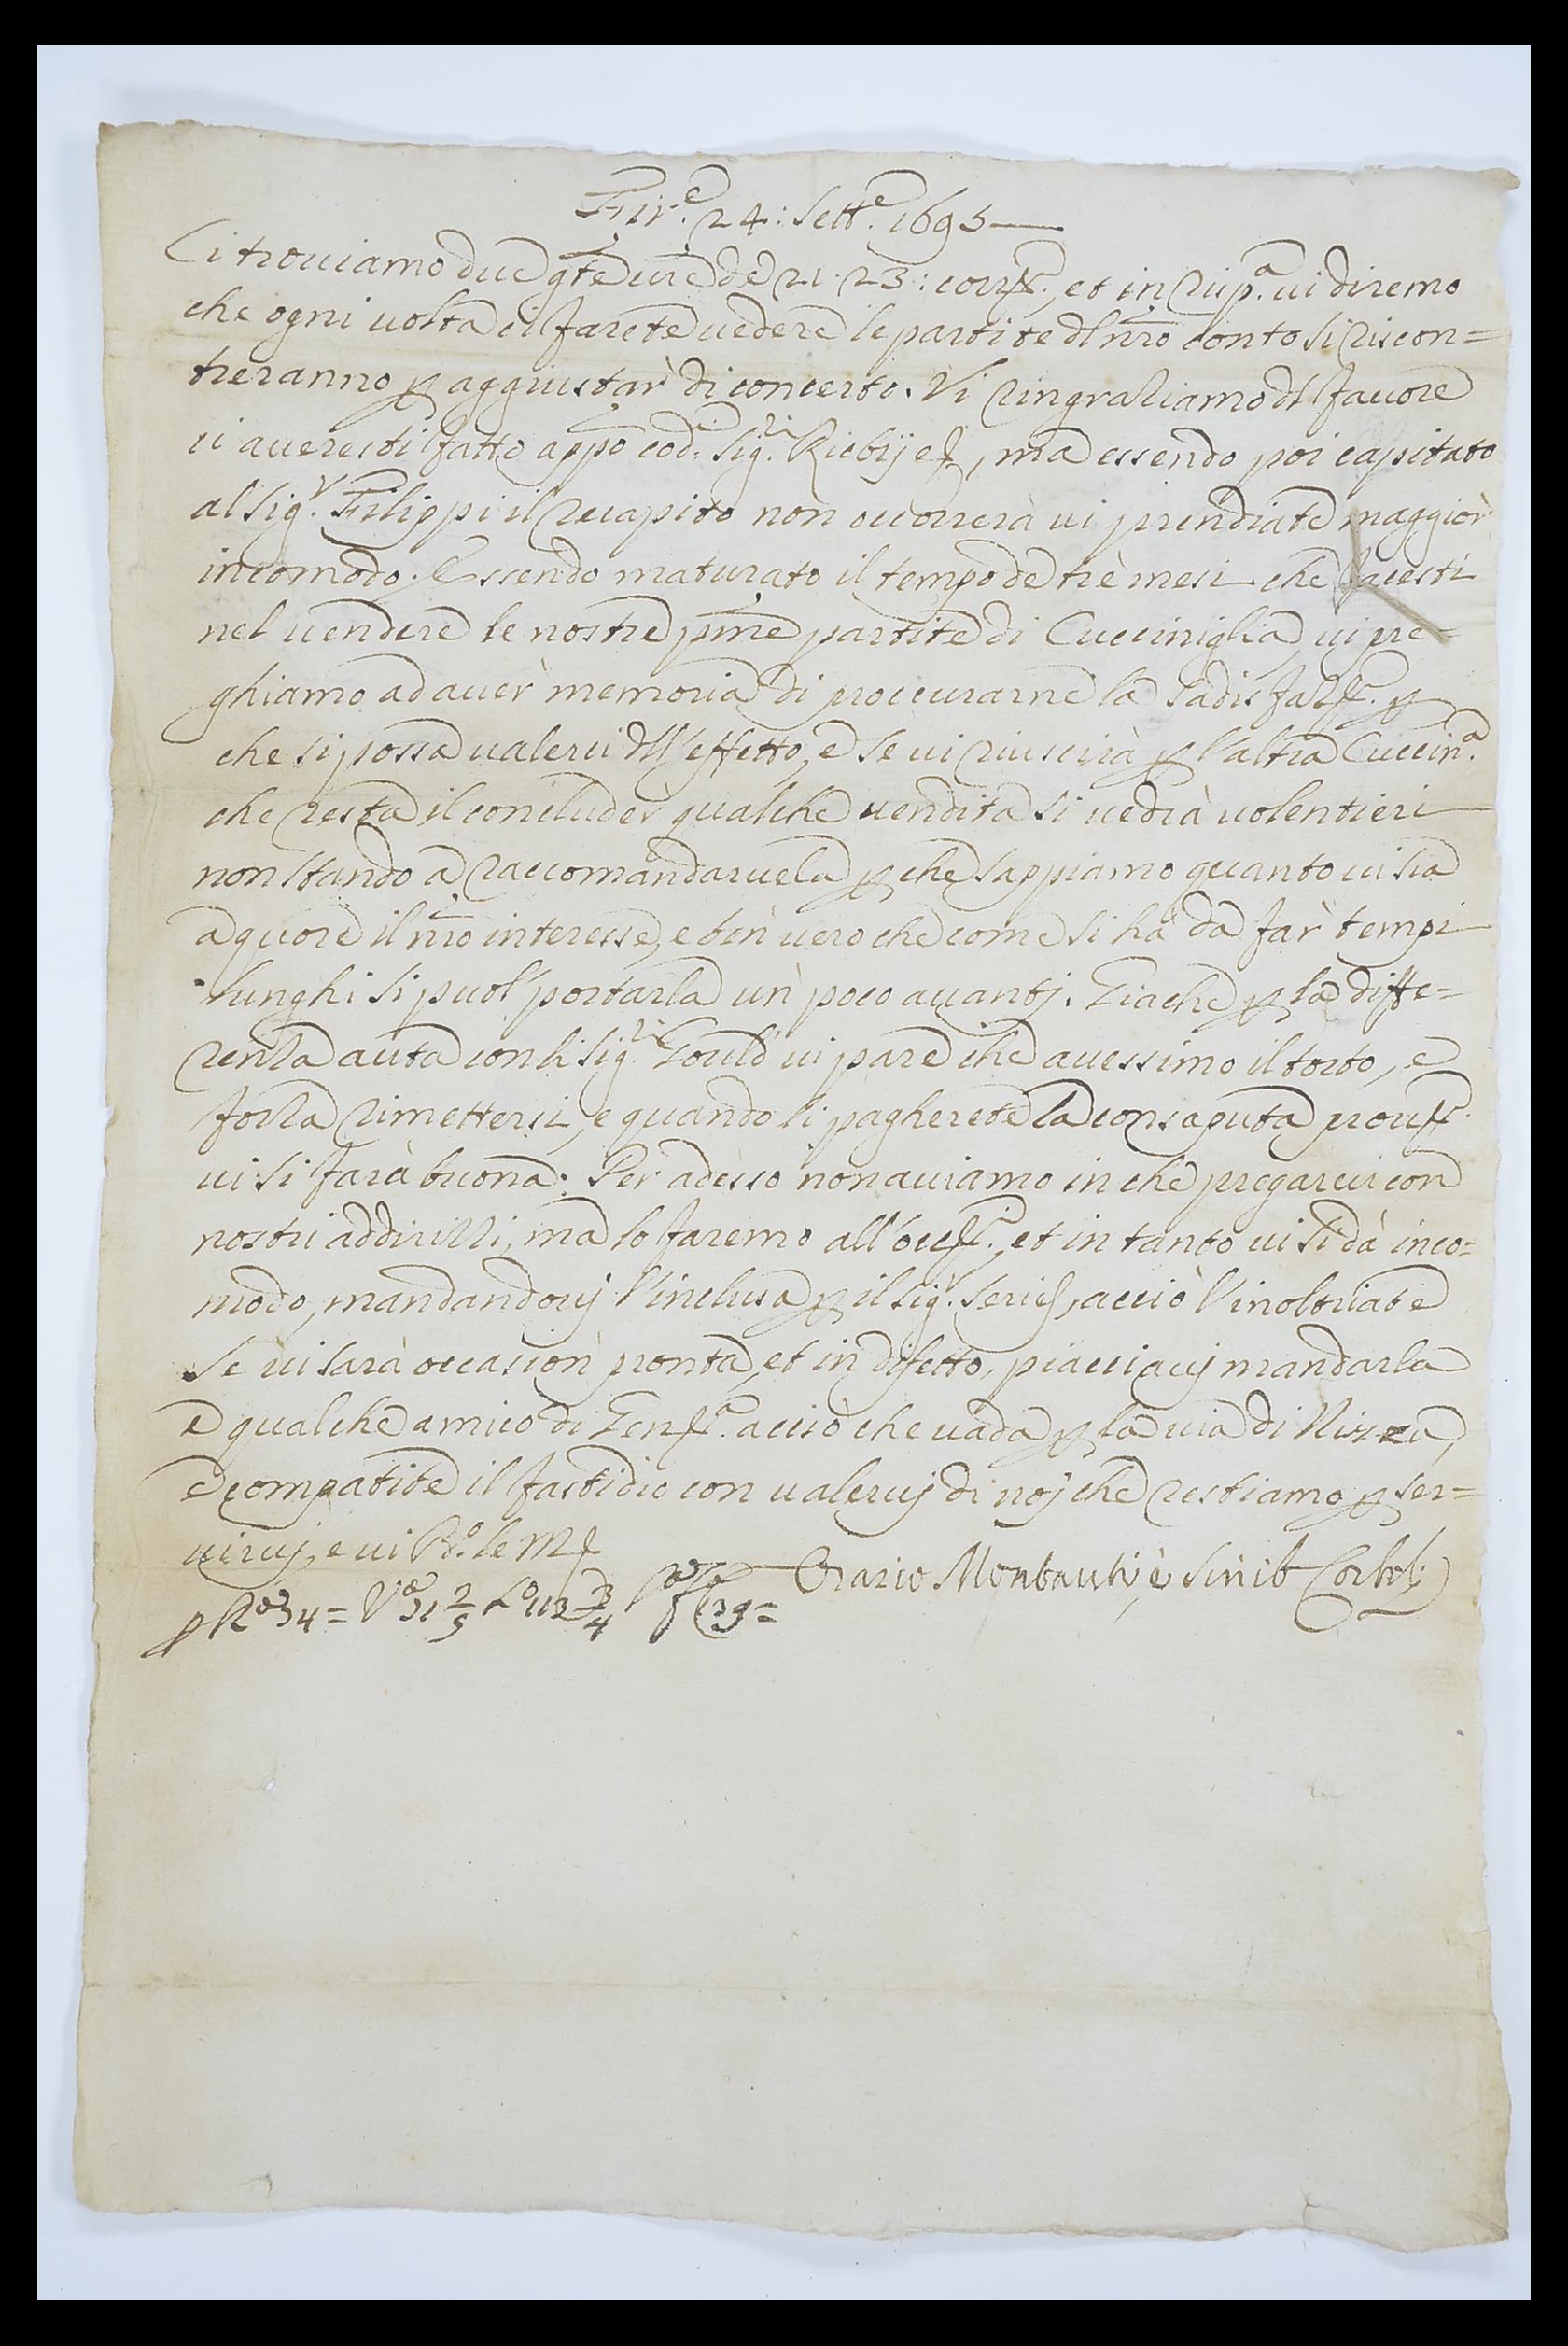 Fir.e 24: Sett.e 1695
Ci trouiamo due gte ure de 21. 23: corr.te, et in risp.a ui diremo
che ogni uolta ci farete uedere le partite dl nro conto si riscon=
treranno p aggiustar di concerto. Vi ringraziamo dl fauore
ci aueresti fatto appo cod.i Sig.ri, ma essendo poi capitato
al Sig.r Filippi il recapito non occorrerà ui prendiate maggior
incomodo. Essendo maturato il tempo de trè mesi che facesti
nel uendere le nostre pme partite di Cucciniglia, ui pre=
ghiamo ad auer memoria di proccurarne la sadisfaz.e p
che si possa ualerci dll'effetto, e se ui riuscirà p l'altra Cuccin.a
che resta il concluder qualche uendita si uedrà uolentieri
non stando a raccomandaruela p che sappiamo quanto ui sia
a quore il nro interesse, e ben uero che come si ha da far tempi
lunghi si puol portarla un poco auantj. Giache p la diffe=
renza auta con li Sig.ri Gould ui pare che auessimo il torto, e
forza rimettersi, e quando li pagherete la consaputa prou.e
ui si farà buona. Per adesso non auiamo in che pregarui con
nostri addirizzi, ma lo faremo all'occ.e, et in tanto ui si dà inco=
modo, mandandouj l'inclusa p il Sig.r, acciò l'inoltriate
se ui sarà occasion pronta, et in difetto, piacciauj mandarla
a qualche amico di Gen.a acciò che uada p la uia di Nizza,
e compatite il fastidio con ualeruj di noj che restiamo p ser=
uiruj, e ui B.o le M
Orazio Monbauti, e Sinib Corbolj